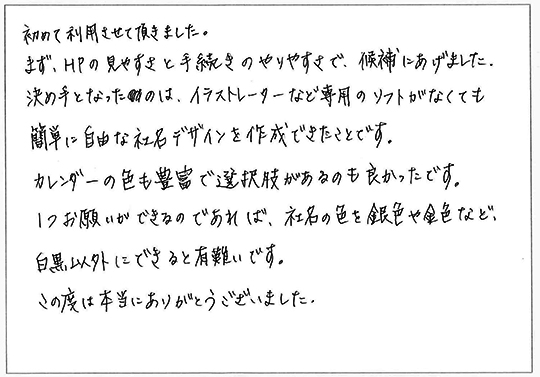 初めて利用させて頂きました。
まず、HPの見やすさと手続きのやりやすさで、候補にあげました。
決め手となったのは、イラストレーターなど専用のソフトがなくても
簡単に自由な社名デザインを作成できたことです。
カレンダーの色も豊富で選択肢があるのも良かったです。
1つお願いができるのであれば、社名の色を銀色や金色など、
白黒以外にできると有難いです。
この度は本当にありがとうございました。